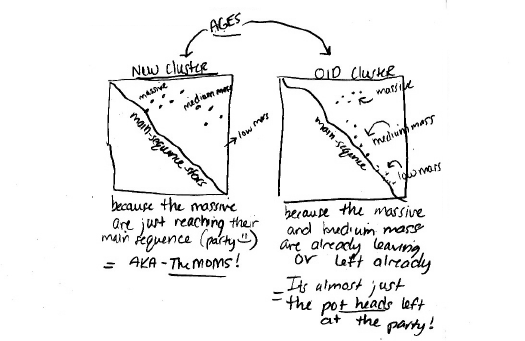 AGES
NEW CLUSTER
massive
medium mass
low mass
main-sequence stars
because the massive
are just reaching their
main sequence (party
= AKA - The MOMS!
OLD CLUSTER
massive
medium mass
low mass
main sequence
because the massive
and medium mass
are already leaving
or left already
= It's almost just
the pot heads left
at the party!